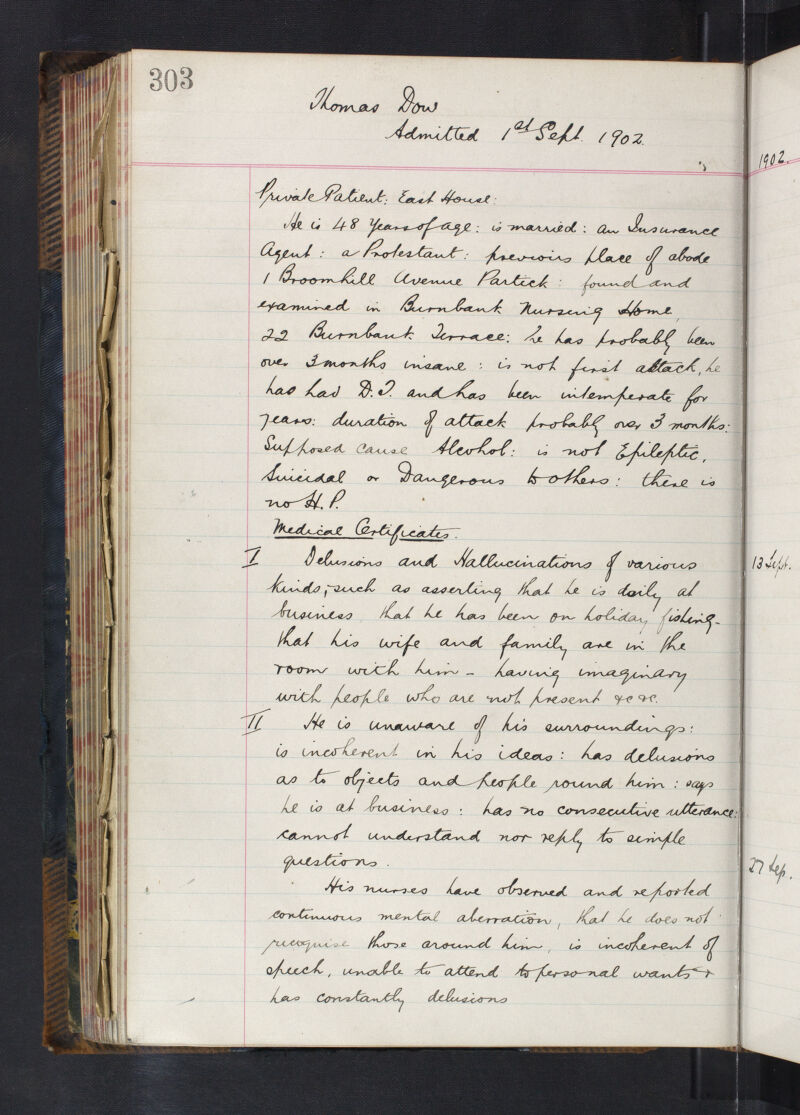 303
Thomas Dow
Admitted 1st Sept. 1902.
Private Patient: East House:
He is 48 years of age: is married: an Insurance
Agent: a Protestant: previous place of abode
1 Broomhill Avenue Partick: found and
examined in Burnbank Nursing Home,
22 Burnbank Terrace: he has probably been
over 3 months insane: is not first attack, he
has had D.T. and has been intemperate for
years: duration of attack probably over 3 months:
Supposed cause Alcohol: is not Epileptic,
Suicidal or Dangerous to others: there is
no H.P.
Medical Certificates.
I Delusions and Hallucinations of various
kinds, such as asserting that he is daily at
business, that he has been on holiday fishing-
that his wife and family are in the
room with him - having imaginary
with people who are not present &c &c.
II He is unaware of his surroundings:
is incoherent in his ideas: has delusions
as to objects and people round him: says
he is at business: has no consecutive utterance:
cannot understand nor reply to simple
questions.
His nurses have observed and reported
continuous mental aberration, that he does not
recognise those around him, is incoherent of
speech, unable to attend to personal wants &
has constantly delusions
1902.
13 Sept.
27 Sep.